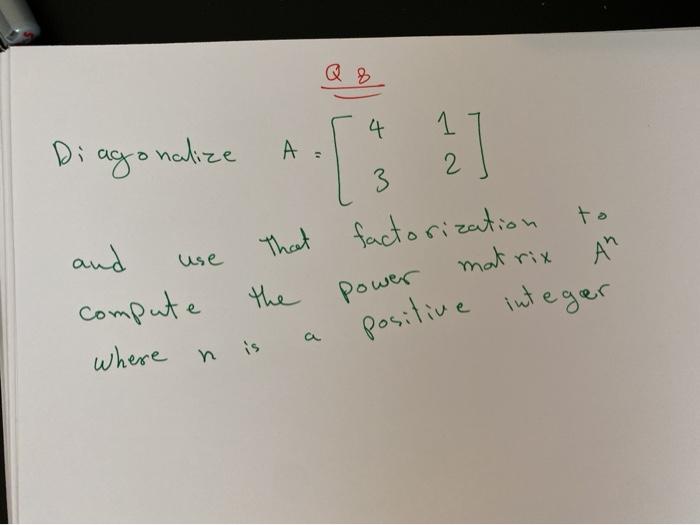 Q 8
Diagonalize A = [ 4 1
3 2 ]
and use that factorization to
compute the power matrix Aⁿ
where n is a positive integer